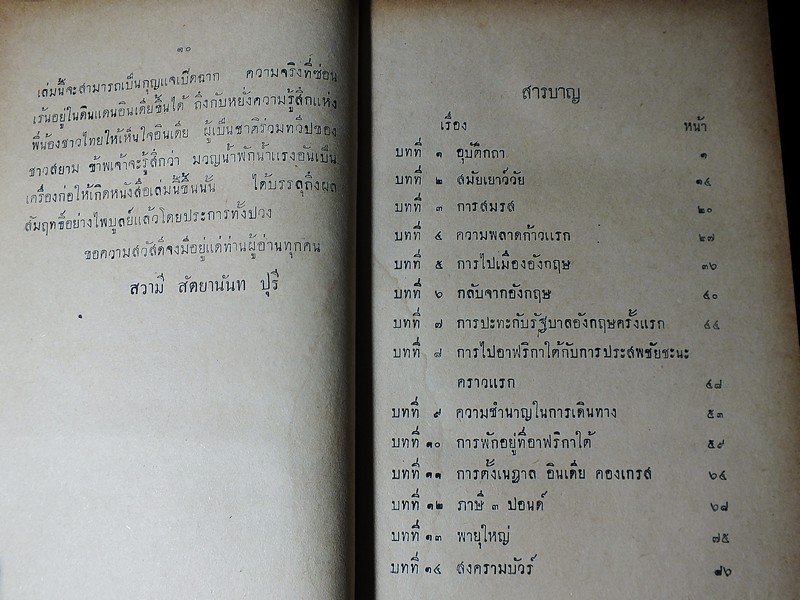 ๑๐
เล่มนี้จะสามารถเป็นกุญแจเปิดฉาก ความจริงที่ซ่อน
เร้นอยู่ในดินแดนอินเดียขึ้นได้ ถึงกับหยั่งความรู้สึกแห่ง
พี่น้องชาวไทยให้เห็นใจอินเดีย ผู้เป็นชาติร่วมทวีปของ
ชาวสยาม ข้าพเจ้าจะรู้สึกว่า มวญน้ำพักน้ำแรงอันเป็น
เครื่องก่อให้เกิดหนังสือเล่มนี้ขึ้นนั้น ได้บรรลุถึงผล
สัมฤทธิ์อย่างไพบูลย์แล้วโดยประการทั้งปวง
ขอความสวัสดีจงมีอยู่แด่ท่านผู้อ่านทุกคน
สวามี สัตยานันท ปุรี
สารบาญ
เรื่อง หน้า
บทที่ ๑ อุบัติกถา ๑
บทที่ ๒ สมัยเยาว์วัย ๑๔
บทที่ ๓ การสมรส ๒๐
บทที่ ๔ ความพลาดก้าวแรก ๒๗
บทที่ ๕ การไปเมืองอังกฤษ ๓๖
บทที่ ๖ กลับจากอังกฤษ ๔๐
บทที่ ๗ การปะทะกับรัฐบาลอังกฤษครั้งแรก ๔๔
บทที่ ๘ การไปอาฟริกาใต้กับการประสพชัยชะนะ
คราวแรก ๔๘
บทที่ ๙ ความชำนาญในการเดินทาง ๕๓
บทที่ ๑๐ การพักอยู่ที่อาฟริกาใต้ ๕๙
บทที่ ๑๑ การตั้งเนฎาล อินเดีย คองเกรส ๖๔
บทที่ ๑๒ ภาษี ๓ ปอนด์ ๖๘
บทที่ ๑๓ พายุใหญ่ ๗๕
บทที่ ๑๔ สงครามบัวร์ ๘๖